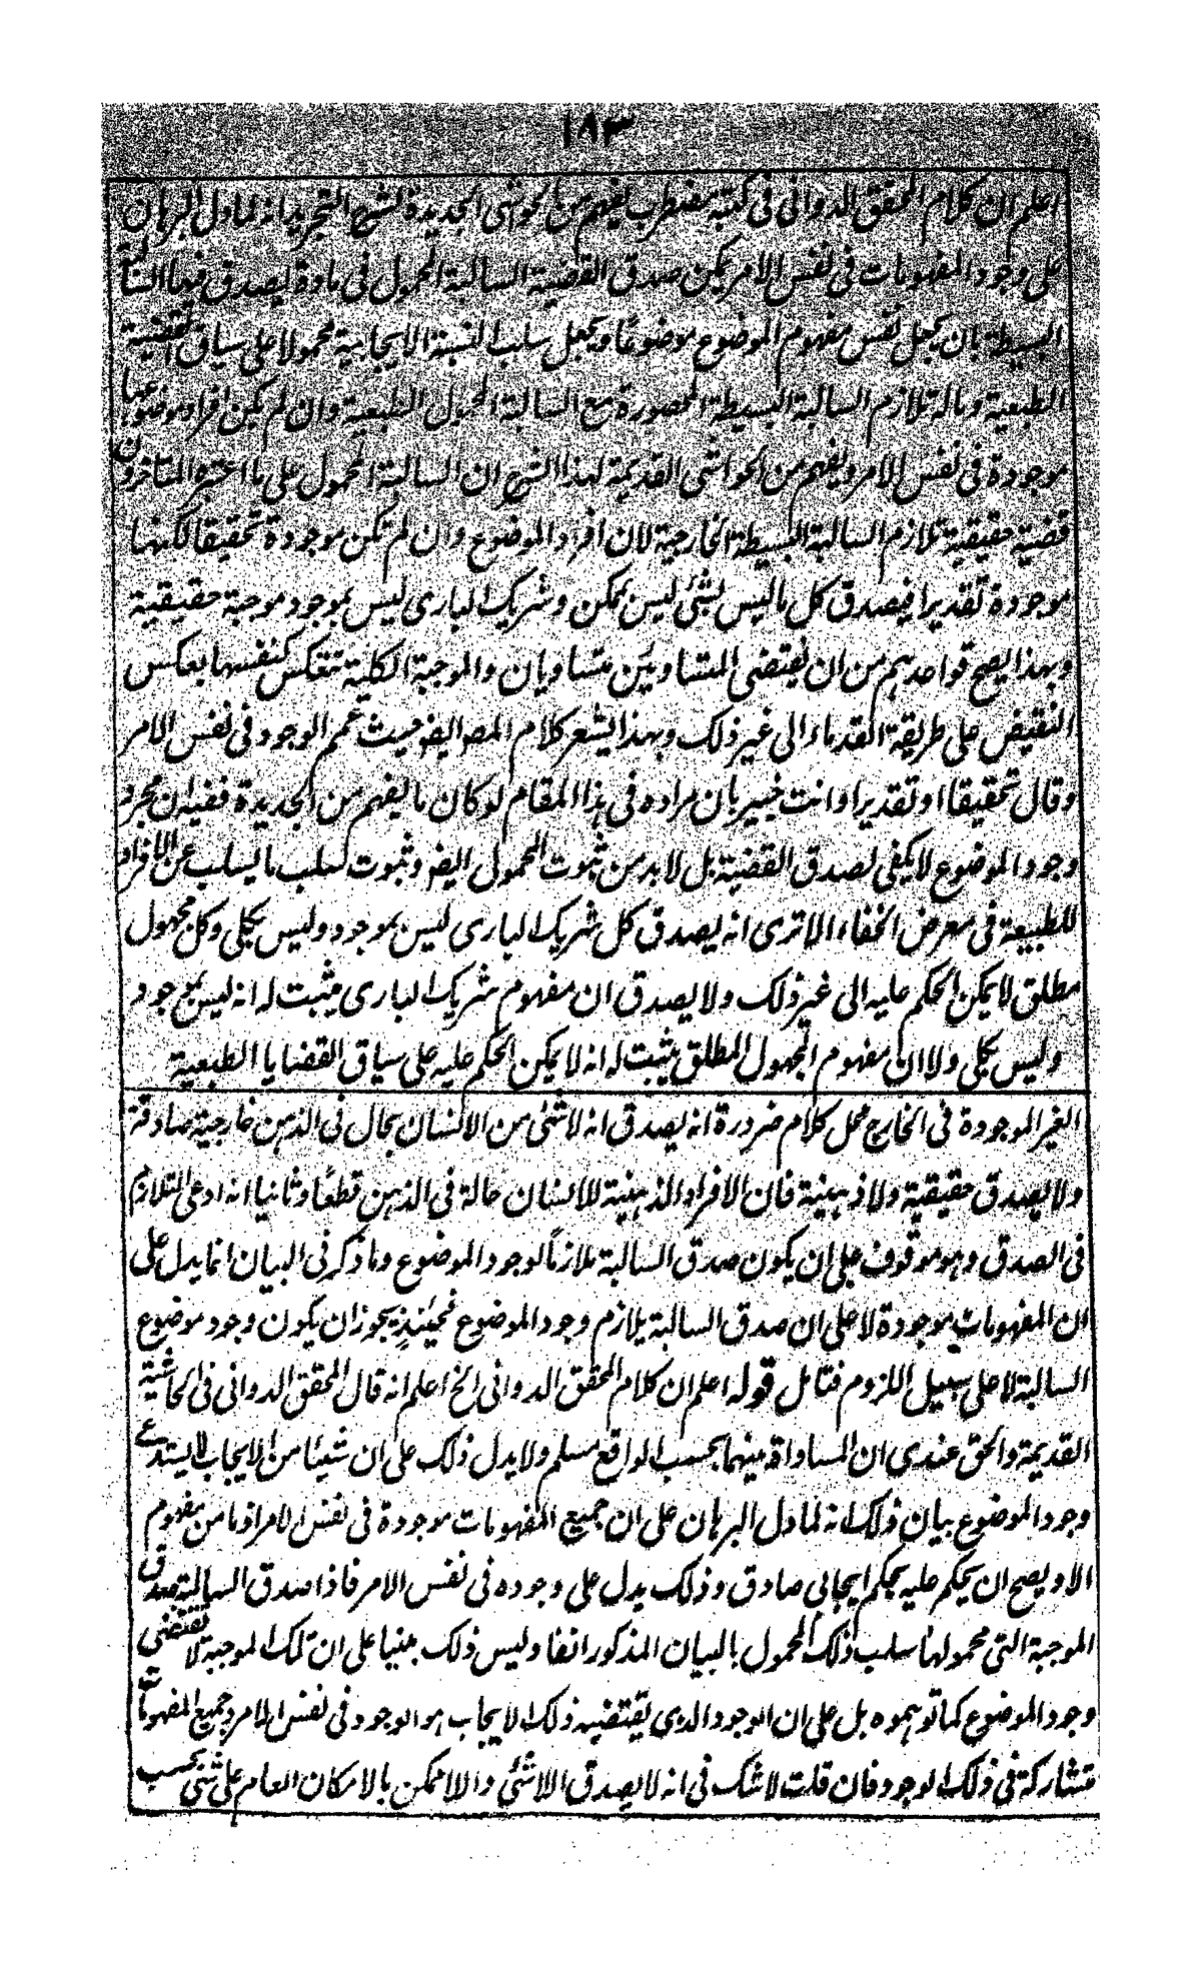 ١٨٣
اعلم ان كلام المحقق الدوانى فى كتبه مضطرب يفهم من الحواشى الجديدة لشرح التجريد انه لما دل البرهان
على وجود المفهومات فى نفس الامر يمكن صدق القضية السالبة المحمول فى مادة يصدق فيها السالبة
البسيطة بان يجعل نفس مفهوم الموضوع موضوعا ويجعل سلب النسبة الايجابية محمولا على سياق القضية
الطبعية وماله تلازم السالبة البسيطة المحصورة مع السالبة المحمول الطبعية وان لم يكن افراد موضوعها
موجودة فى نفس الامر ويفهم من الحواشى القديمة لهذا الشرح ان السالبة المحمول على ما اخترع المتاخرون
قضية حقيقية تلازم السالبة البسيطة الخارجية لان افراد الموضوع وان لم تكن موجودة تحقيقا لكنها
موجودة تقديرا فيصدق كل ما ليس بشئ ليس بممكن وشريك البارى ليس بموجود موجبة حقيقية
وبهذا يصح قواعدهم من ان نقيضى المتساويين متساويان والموجبة الكلية تنعكس كنفسها بعكس
النقيض على طريقة القدماء الى غير ذلك وبهذا يشعر كلام المصـ ايضـ حيث عمم الوجود فى نفس الامر
وقال تحقيقا او تقديرا وانت خبير بان مراده فى هذا المقام لو كان ما يفهم من الجديدة ففيه ان مجرد
وجود الموضوع لا يكفى لصدق القضية بل لا بد من ثبوت المحمول ايضـ وثبوت سلب ما يسلب عن الافراد
للطبيعة فى معرض الخفاء الا ترى انه يصدق كل شريك البارى ليس بموجود وليس بكلى وكل مجهول
مطلق لا يمكن الحكم عليه الى غير ذلك ولا يصدق ان مفهوم شريك البارى يثبت له انه ليس بموجود
وليس بكلى ولا ان مفهوم المجهول المطلق يثبت له انه لا يمكن الحكم عليه على سياق القضايا الطبعية
الغير الموجودة فى الخارج محل كلام ضرورة انه يصدق انه لا شئ من الانسان بحال فى الذهن خارجية صادقة
ولا يصدق حقيقية ولا ذهنية فان الافراد الذهنية للانسان حالة فى الذهن قطعا وثانيا انه ادعى التلازم
فى الصدق وهو موقوف على ان يكون صدق السالبة ملازما لوجود الموضوع وما ذكر فى البيان انما يدل على
ان المفهومات موجودة لا على ان صدق السالبة يلازم وجود الموضوع فحينئذ يجوز ان يكون وجود موضوع
السالبة لا على سبيل اللزوم فتامل قوله اعلم ان كلام المحقق الدوانى الخ اعلم انه قال المحقق الدوانى فى الحاشية
القديمة والحق عندى ان المساواة بينهما بحسب الواقع مسلم ولا يدل ذلك على ان شيئا من الايجاب لا يستدعى
وجود الموضوع بيان ذلك انه لما دل البرهان على ان جميع المفهومات موجودة فى نفس الامر اذ ما من مفهوم
الا ويصح ان يحكم عليه بحكم ايجابى صادق وذلك يدل على وجوده فى نفس الامر فاذا صدق السالبة صدق
الموجبة التى محمولها سلب ذلك المحمول بالبيان المذكور انفا وليس ذلك مبنيا على ان تلك الموجبة لا تقتضى
وجود الموضوع كما توهموه بل على ان الوجود الذى يقتضيه ذلك الايجاب هو الوجود فى نفس الامر وجميع المفهومات
متشاركة فى ذلك الوجود فان قلت لا شك فى انه لا يصدق اللاشئ واللاممكن بالامكان العام على شئ بحسب